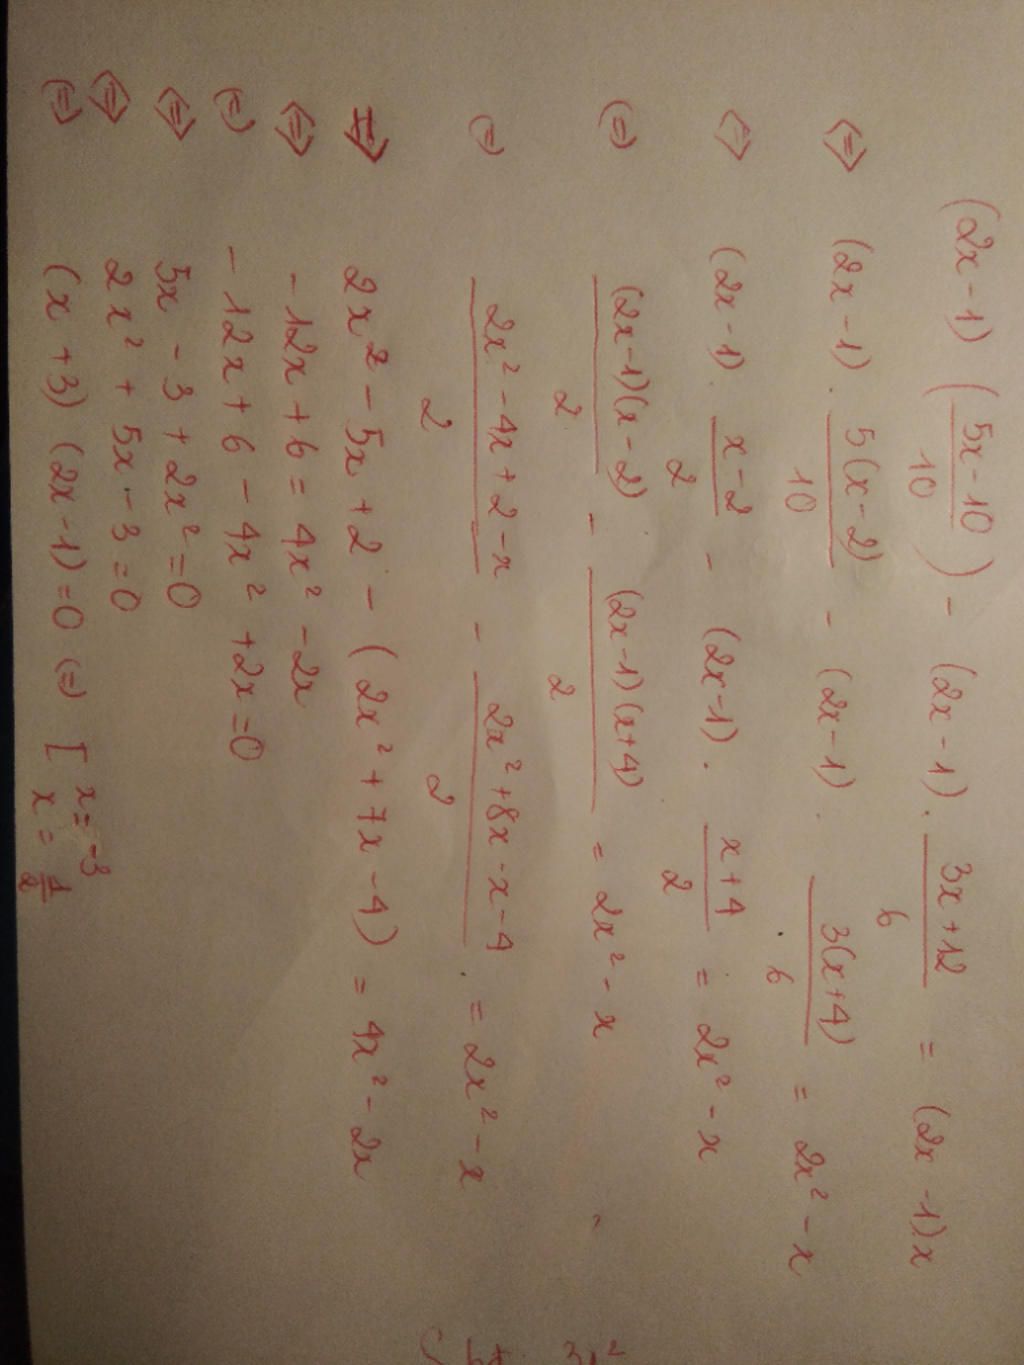 (2x - 1) ( (5x - 10)/10 ) - (2x - 1) . (3x + 12)/6 = (2x - 1)x
⇔ (2x - 1) . 5(x - 2)/10 - (2x - 1) . 3(x + 4)/6 = 2x² - x
⇔ (2x - 1) . (x - 2)/2 - (2x - 1) . (x + 4)/2 = 2x² - x
⇔ (2x - 1)(x - 2)/2 - (2x - 1)(x + 4)/2 = 2x² - x
⇔ (2x² - 4x + 2 - x)/2 - (2x² + 8x - x - 4)/2 = 2x² - x
⇔ 2x² - 5x + 2 - (2x² + 7x - 4) = 4x² - 2x
⇔ - 12x + 6 = 4x² - 2x
⇔ - 12x + 6 - 4x² + 2x = 0
⇔ 5x - 3 + 2x² = 0
⇔ 2x² + 5x - 3 = 0
⇔ (x + 3) (2x - 1) = 0 ⇔ [ x = -3
x = 1/2